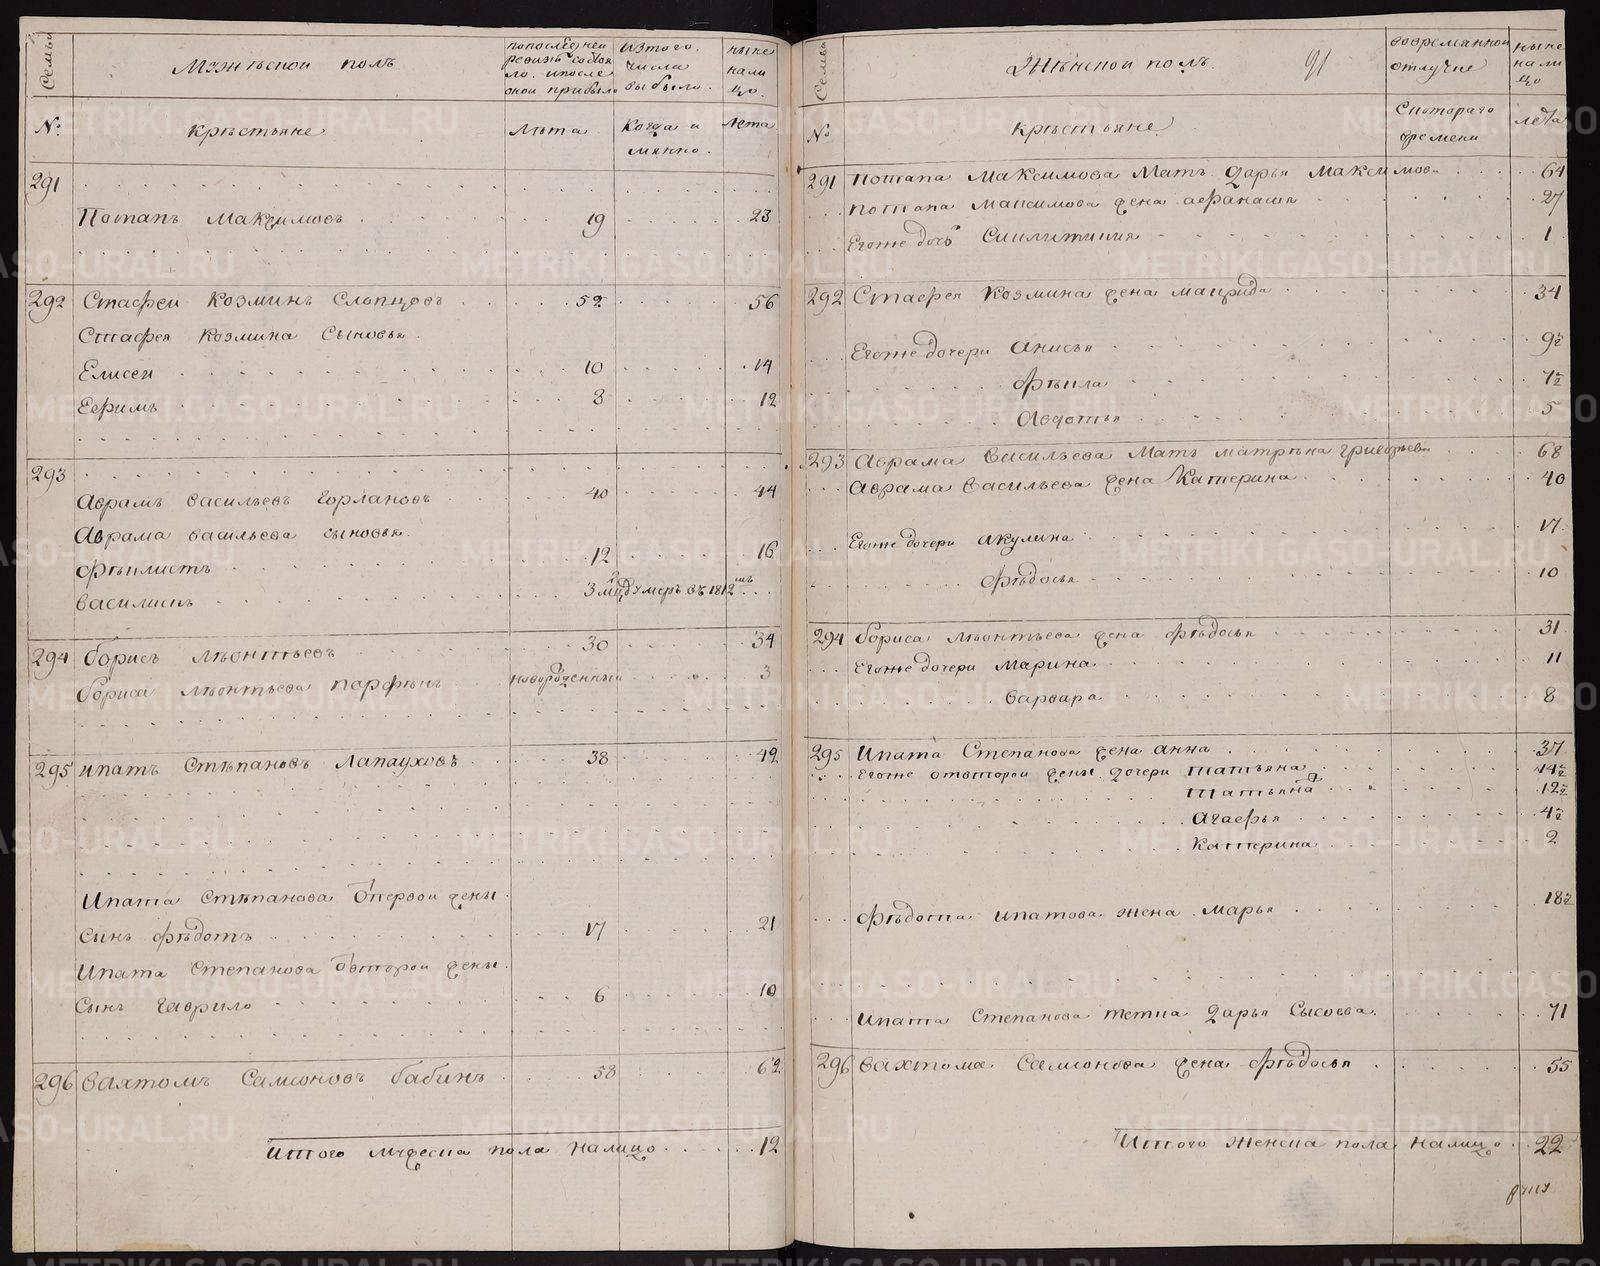 Семьи
Мужеской полъ
попоследней ревизiи состояло. ипосле оной прибыло
изтого числа выбыло.
ныне нали цо.
№
крестьяне
Лѣта
Когда и мянно.
Лета
291
Потапъ Максимовъ 19 23
292 Стафеи Козминъ Слопцовъ 52 56
Стафея Козмина Сыновья
Елисеи 10 14
Ефимъ 8 12
293
Аврамъ васильевъ Горлановъ 40 44
Аврама васильева сыновья
Филистъ 12 16
василискъ 3 мцъ умеръ въ 1812мъ
294 борисъ леонтьевъ 30 34
бориса леонтьева парфенъ новорожденный 3
295 ипатъ Степановъ Лапауховъ 38 42
Ипата Степанова отпервой жены
сынъ федотъ 17 21
Ипата Степанова отвторой жены
сынъ гаврило 6 10
296 Вахтомъ Самсоновъ бабинъ 58 62
Итого мужеска пола налицо 12
Семьи
Женской полъ
91
вовременной отлучке
ныне нали цо
№
крестьяне
Скотораго времени
лета
291 Потапа Максимова Мать дарья Максимова 64
потапа максимова жена афанасия 27
Егоже дочь Синклитикия 1
292 Стафея Козмина жена маврида 34
Егоже дочери анисья 9½
фекла 7½
Авдотья 5
293 Аврама васильева Мать матрена григорьева 68
Аврама васильева жена Катерина 40
Егоже дочери акулина 17
федосья 10
294 бориса леонтьева жена федосья 31
Егоже дочери марина 11
варвара 8
295 Ипата Степанова жена анна 37
Егоже отвторой жены дочери татьяна 14½
татьяна 12½
агафья 4½
катерина 2
федота ипатова жена марья 18½
Ипата Степанова тетка дарья Сысоева 71
296 вахтома Самсонова жена федосья 55
Итого женска пола налицо 22
METRIKI.GASO-URAL.RU